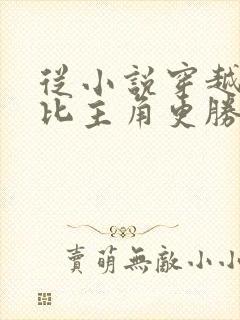 從小說穿越
比主角更勝
賣萌無敵小小